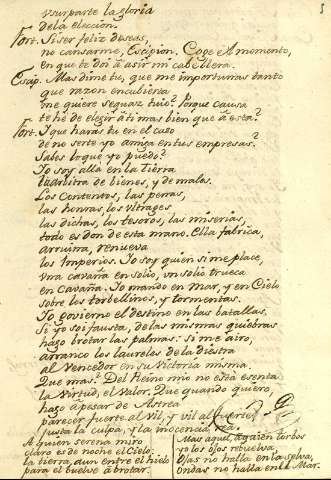 5
usurparte la gloria
de la eleccion.
Fort. Si ser feliz deseas,
no cansarme, Escipion. Coge el momento,
en que te doi à asir mi cabellera.
Escip. Mas dime tu, que me importunas tanto
que razon encubierta
me quiere sequaz tuio? Porque causa
te hé de elegir à ti mas bien que à esta?
Fort. I que harás tu en el caso
de no serte yo amiga en tus empresas?
Sabes lo que yo puedo?
Io soy allá en la tierra
de bienes, y de males.
Los Contentos, las penas,
las honras, los ultrages
las dichas, los tesoros, las miserias,
todo es don de esta mano. Ella fabrica,
arruina, renueva
los Imperios. Io soy quien si me place,
una cavaña en solio, un solio trueca
en Cavaña. Io mando en Mar, y en Cielo
sobre los torbellinos, y tormentas.
Io govierno el destino en las batallas,
Si yo soi fausta, de las mismas quiebras
hago brotar las palmas: si me aíro,
arranco los laureles de la diestra
al Vencedor en su Victoria misma.
Que mas? Del Reino mio no está esenta
la Virtud, el Valor. Que quando quiero,
hago à pesar de Astrea
parecer fuerte al Vil, y vil al fuerte,
justa la culpa, y la inocencia rea.
A quien serena miro
claro es de noche el Cielo:
la tierra, aun entre el hielo
para el buelve à brotar.
Mas aquel, à quien torbos
yo los ojos rebuelva,
Ojas no halla en la selva,
ondas no halla en el Mar.